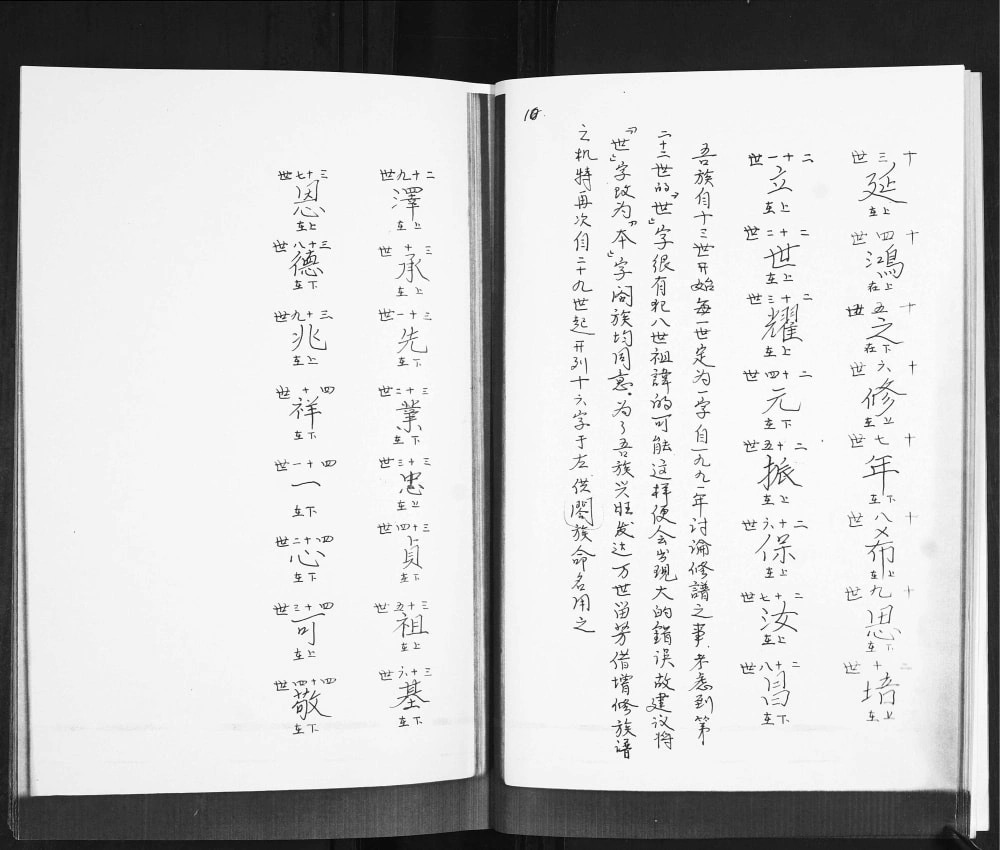 10
十三世 延 上左
十四世 鴻 上在
十五世 之 下在
十六世 修 上左
十七世 年 下左
十八世 希 上左
十九世 思 下左
二十世 培 上左
二十一世 立 上左
二十二世 世 上左
二十三世 耀 上左
二十四世 元 下左
二十五世 振 上左
二十六世 保 上左
二十七世 汝 上左
二十八世 昌 下左
吾族自十三世开始每一世定为一字自一九九一年讨論修譜之事考慮到第
二十二世的"世"字很有犯八世祖諱的可能这样便会出現大的錯误故建议将
"世"字改为"本"字阁族均同意。为了吾族兴旺发达万世留芳借增修族譜
之机特再次自二十九世起开列十六字于左供閤族命名用之
二十九世 澤 上左
三十世 承 上左
三十一世 先 下左
三十二世 業 下左
三十三世 忠 上左
三十四世 貞 下左
三十五世 祖 上左
三十六世 基 下左
三十七世 恩 上左
三十八世 德 下左
三十九世 兆 上左
四十世 祥 下左
四十一世 一 下左
四十二世 心 下左
四十三世 可 上左
四十四世 敬 下左